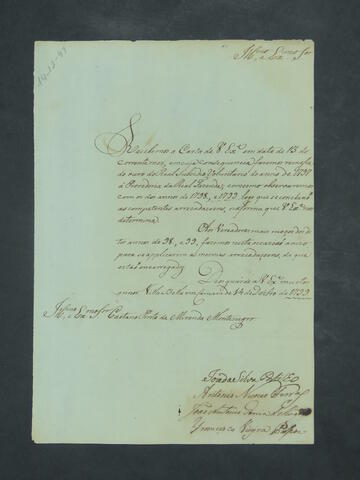 Ill.mo e Ex.mo Snr
14-12-99
Recebemos a Carta de V. Ex.ª em data de 13 do
corrente mes, em cuja consequencia fazemos remessa
do ouro do Real Subsidio Voluntario do anno de 1797
á Provedoria da Real Fazenda; e o mesmo observaremos
com os dos annos de 1798, e 1799, logo que se concluão
as competentes arrecadaçoens, na forma que V. Ex.ª nos
determina.
Aos Vereadores mais moços dos di
tos annos de 98, e 99, fazemos nesta occazião avizo
para se applicarem ás mesmas arrecadaçoens, de que
estão encarregados.
Deos guarde a V. Ex.ª muitos
annos Villa Bella em Camara de 14 de Dezbro de 1799
Ill.mo e Ex.mo Snr Caetano Pinto de Miranda Montenegro
da Silva
Antonio Nunes
João Antonio
Francisco